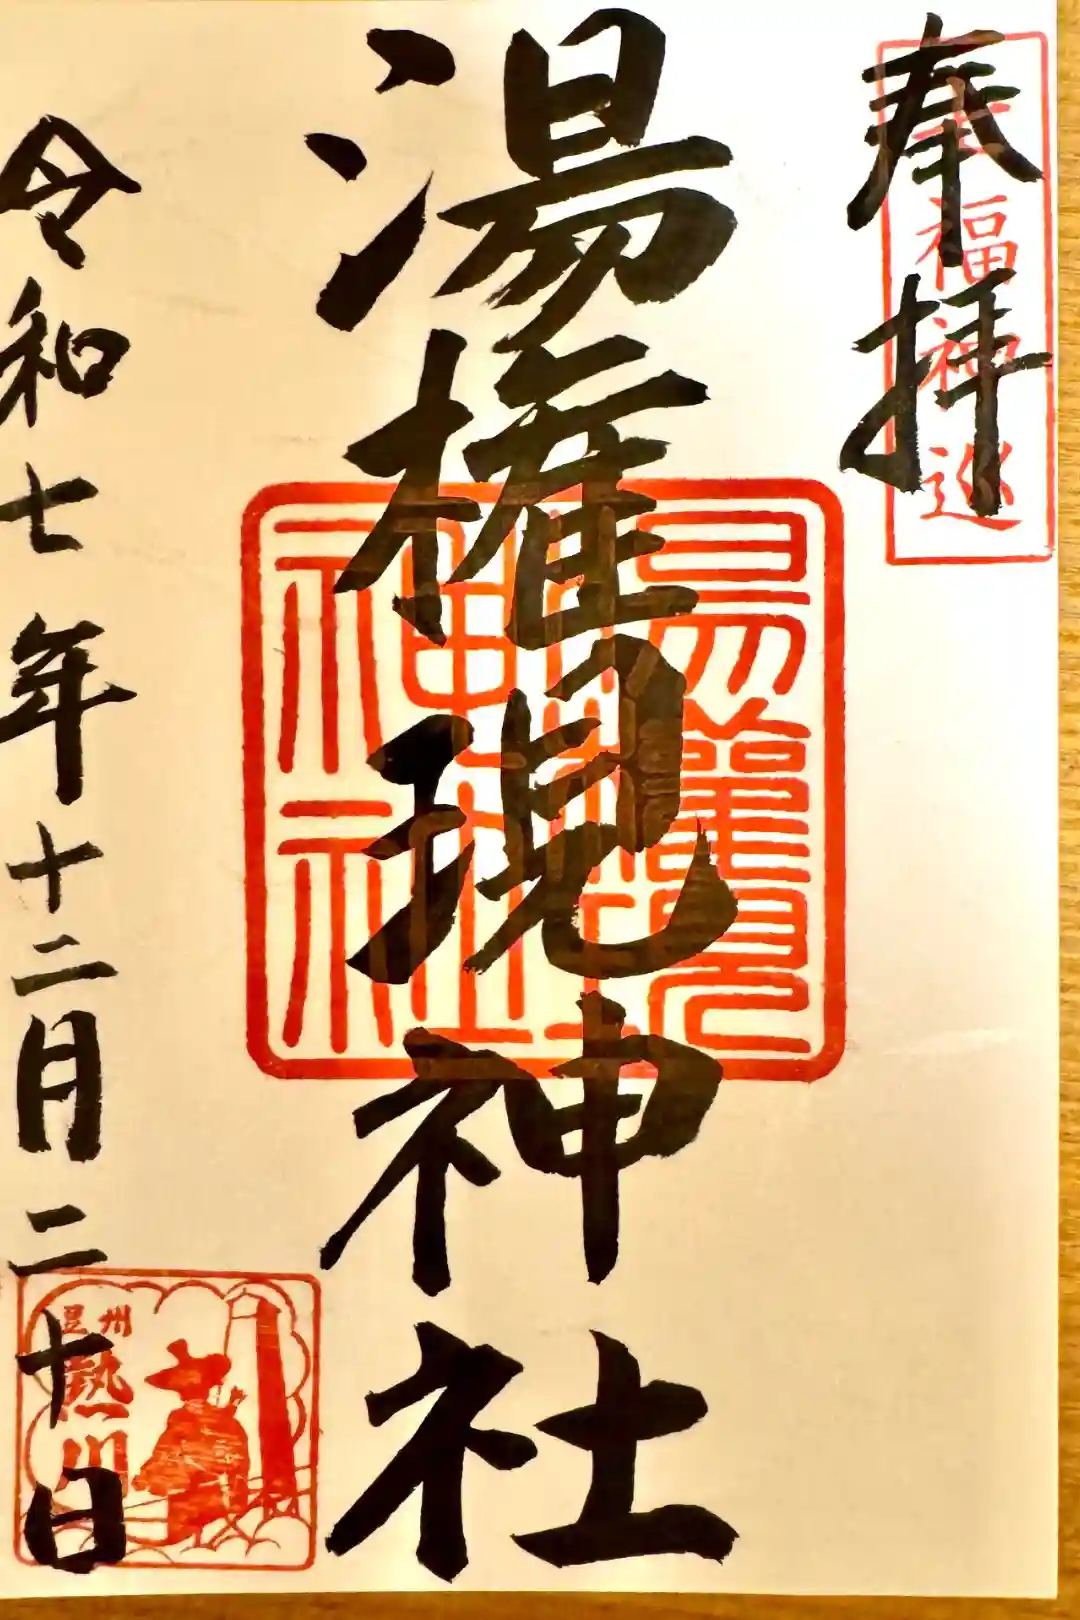 奉拝
福神巡
湯権現神社
令和七年十二月二十日
豆州
熱川